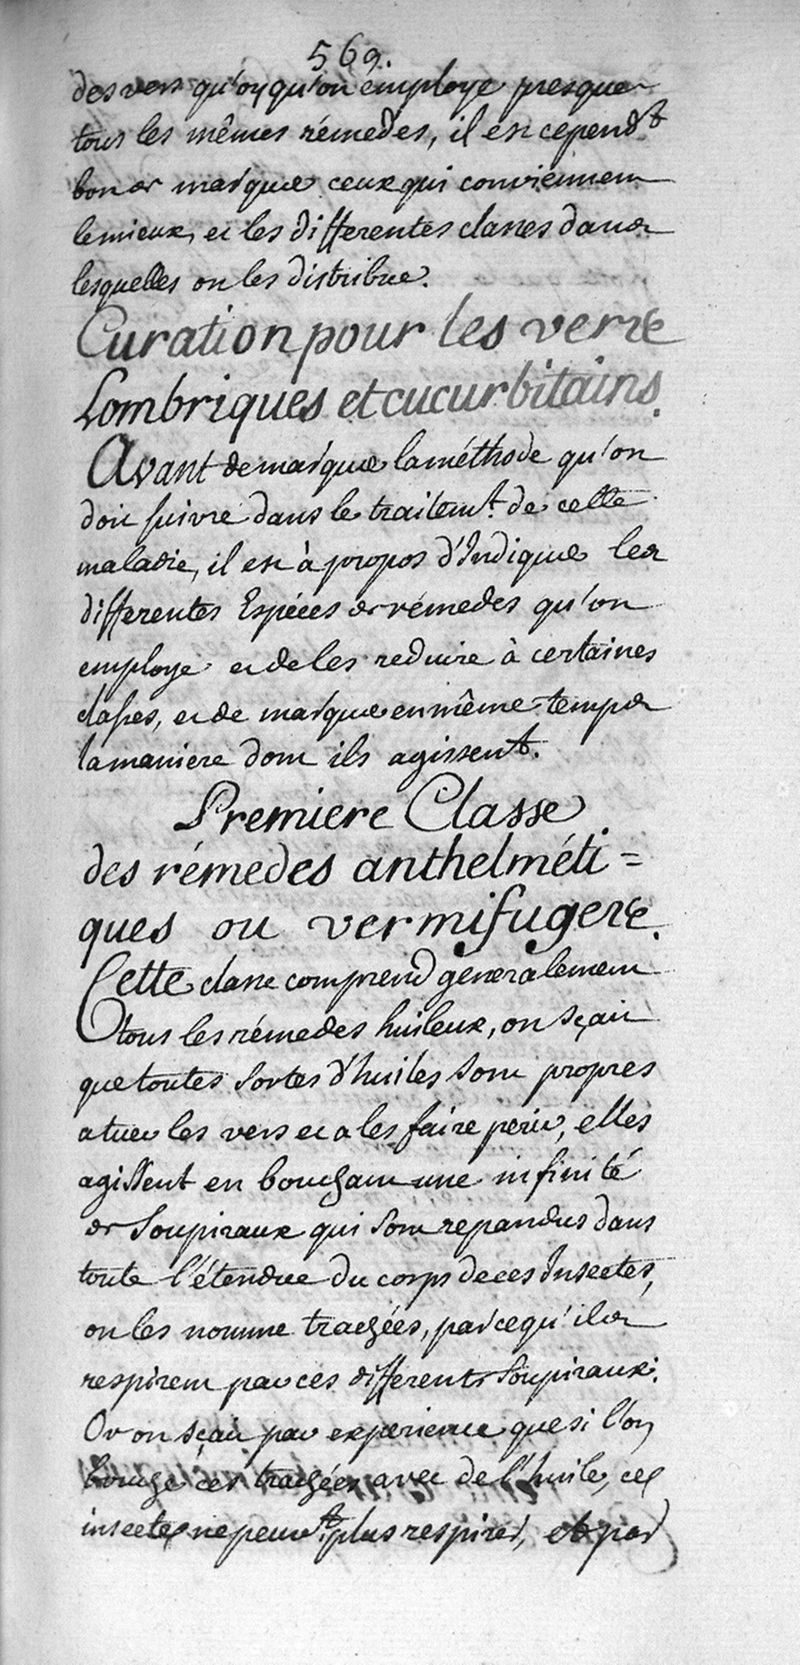 569.
des vers qu'oyqu'on employe presque
tous les mêmes rémedes, il est cepend.t
bon de marquer ceux qui conviennent
le mieux, et les differentes classes dans
lesquelles on les distribue.
Curation pour les vers
Lombriques et cucurbitains.
Avant de marquer la méthode qu'on
doit suivre dans le traitem.t de cette
maladie, il est à propos d'Indiquer les
differentes Espéces de rémedes qu'on
employe et de les reduire à certaines
classes, et de marquer en même temps
la maniere dont ils agissent.
Premiere Classe
des rémedes anthelméti=
ques ou vermifuges.
Cette classe comprend generalement
tous les rémedes huileux, on sçait
que toutes sortes d'huiles sont propres
a tuer les vers et a les faire perir, elles
agissent en bouchant une infinité
de soupiraux qui sont repandus dans
toute l'étendue du corps de ces Insectes,
on les nomme trachées, parcequ'ils
respirent par ces differents soupiraux.
Or on sçait par experience que si l'on
bouche ces trachées avec de l'huile, ces
insectes ne peuv.t plus respirer, et par